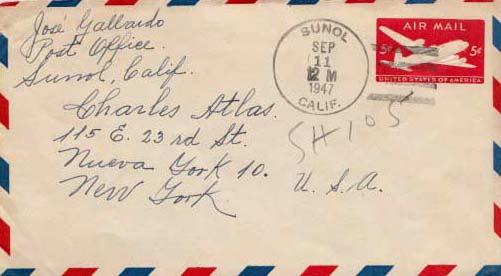 José Gallardo
Post Office.
Sunol, Calif.
SUNOL
SEP
11
12 M
1947
CALIF.
AIR MAIL
5¢ 5¢
UNITED STATES OF AMERICA
SH105
Charles Atlas.
115 E. 23rd St.
Nueva York 10.
New York. U. S. A.